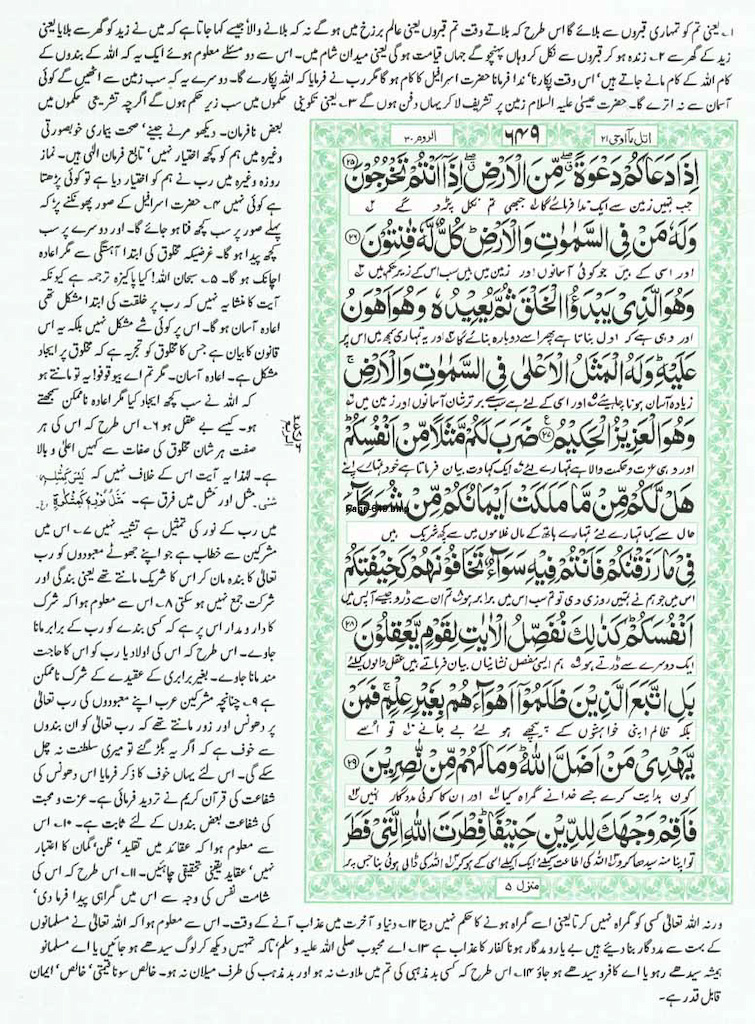 ۱۔ یعنی تم کو تمہاری قبروں سے بلائے گا اس طرح کہ بلاتے وقت تم قبروں یعنی عالم برزخ میں ہو گے نہ کہ بلانے والا جیسے کہا جاتا ہے کہ میں نے زید کو گھر سے بلایا یعنی
زید کے گھر سے ۲۔ زندہ ہو کر قبروں سے نکل کر وہاں پہنچو گے جہاں قیامت ہو گی یعنی میدان شام میں۔ اس سے دو مسئلے معلوم ہوئے ایک یہ کہ اللہ کے بندوں کے
کام اللہ کے کام مانے جاتے ہیں' اس وقت پکارنا' ندا فرمانا حضرت اسرافیل کا کام ہو گا مگر رب نے فرمایا کہ اللہ پکارے گا۔ دوسرے یہ کہ سب زمین سے اٹھیں گے کوئی
آسمان سے نہ اترے گا۔ حضرت عیسیٰ علیہ السلام زمین پر تشریف لا کر یہاں دفن ہوں گے ۳۔ یعنی تکوینی حکموں میں سب زیر حکم ہوں گے اگرچہ تشریعی حکموں میں
بعض نافرمان۔ دیکھو مرنے جینے' صحت بیماری خوبصورتی
وغیرہ میں ہم کو کچھ اختیار نہیں' تابع فرمان الٰہی ہیں۔ نماز
روزہ وغیرہ میں رب نے ہم کو اختیار دیا ہے تو کوئی پڑھتا
ہے کوئی نہیں ۴۔ حضرت اسرافیل کے صور پھونکنے پر کہ
پہلے صور پر سب کچھ فنا ہو جائے گا۔ اور دوسرے پر سب
کچھ پیدا ہو گا۔ غرضیکہ مخلوق کی ابتدا آہستگی سے مگر اعادہ
اچانک ہو گا۔ ۵۔ سبحان اللہ! کیا پاکیزہ ترجمہ ہے کیونکہ
آیت کا منشا یہ نہیں کہ رب پر خلقت کی ابتدا مشکل تھی
اعادہ آسان ہو گا۔ اس پر کوئی شے مشکل نہیں بلکہ یہ اس
قانون کا بیان ہے جس کا مخلوق کو تجربہ ہے کہ مخلوق پر ایجاد
مشکل ہے۔ اعادہ آسان۔ مگر تم اے بیوقوفو! یہ تو مانتے ہو
کہ اللہ نے سب کچھ ایجاد کیا مگر اعادہ ناممکن سمجھتے
ہو۔ کیسے بے عقل ہو ۶۔ اس طرح کہ اس کی ہر
صفت ہر شان مخلوق کی صفات سے کہیں اعلیٰ و بالا
ہے۔ لہٰذا یہ آیت اس کے خلاف نہیں کہ لَيْسَ كَمِثْلِهٖ
شَيْءٌ مثل اور مَثل میں فرق ہے۔ مَثَلُ نُوْرِهٖ كَمِشْكٰوةٍ
میں رب کے نور کی تمثیل ہے تشبیہ نہیں ۷۔ اس میں
مشرکین سے خطاب ہے جو اپنے جھوٹے معبودوں کو رب
تعالیٰ کا بندہ مان کر اس کا شریک مانتے تھے یعنی بندگی اور
شرکت جمع نہیں ہو سکتی ۸۔ اس سے معلوم ہوا کہ شرک
کا دار و مدار اس پر ہے کہ کسی بندے کو رب کے برابر مانا
جاوے۔ اس طرح کہ اس کی اولاد یا رب کو اس کا حاجت
مند مانا جاوے۔ بغیر برابری کے عقیدے کے شرک ناممکن
ہے ۹۔ چنانچہ مشرکین عرب اپنے معبودوں کی رب تعالیٰ
پر دھونس اور زور مانتے تھے کہ رب تعالیٰ کو ان بندوں
سے خوف ہے کہ اگر یہ بگڑ گئے تو میری سلطنت نہ چل
سکے گی۔ اس لئے یہاں خوف کا ذکر فرمایا اس دھونس کی
شفاعت کی قرآن کریم نے تردید فرمائی ہے۔ عزت و محبت
کی شفاعت بعض بندوں کے لئے ثابت ہے۔ ۱۰۔ اس
سے معلوم ہوا کہ عقائد میں تقلید' ظن' گمان کا اعتبار
نہیں' عقاید یقینی تحقیقی چاہئیں۔ ۱۱۔ اس طرح کہ اس کی
شامت نفس کی وجہ سے اس میں گمراہی پیدا فرما دی'
اتل ما اوحی ۲۱
۶۴۹
الروم ۳۰
اِذَا دَعَاكُمْ دَعْوَةً مِّنَ الْاَرْضِ اِذَاۤ اَنْتُمْ تَخْرُجُوْنَ ۲۵
جب تمہیں زمین سے ایک ندا فرمائے گا جبھی تم نکل پڑو گے
وَلَهٗ مَنْ فِى السَّمٰوٰتِ وَالْاَرْضِ كُلٌّ لَّهٗ قٰنِتُوْنَ ۲۶
اور اسی کے ہیں جو کوئی آسمانوں اور زمین میں ہیں سب اس کے زیر حکم ہیں
وَهُوَ الَّذِىْ يَبْدَؤُا الْخَلْقَ ثُمَّ يُعِيْدُهٗ وَهُوَ اَهْوَنُ
اور وہی ہے کہ اول بناتا ہے پھر اسے دوبارہ بنائے گا اور یہ تمہاری سمجھ میں اس پر
عَلَيْهِ وَلَهُ الْمَثَلُ الْاَعْلٰى فِى السَّمٰوٰتِ وَالْاَرْضِ
زیادہ آسان ہونا چاہئے اور اسی کے لئے ہے سب سے برتر شان آسمانوں اور زمین میں
وَهُوَ الْعَزِيْزُ الْحَكِيْمُ ۲۷ ضَرَبَ لَكُمْ مَّثَلًا مِّنْ اَنْفُسِكُمْ
اور وہی عزت و حکمت والا ہے تمہارے لئے ایک کہاوت بیان فرماتا ہے خود تمہارے اپنے
هَلْ لَّكُمْ مِّنْ مَّا مَلَكَتْ اَيْمَانُكُمْ مِّنْ شُرَكَآءَ
Page-649.bmp
حال سے کیا تمہارے لئے تمہارے ہاتھ کے مال غلاموں میں سے کچھ شریک ہیں
فِىْ مَا رَزَقْنٰكُمْ فَاَنْتُمْ فِيْهِ سَوَآءٌ تَخَافُوْنَهُمْ كَخِيْفَتِكُمْ
اس میں جو ہم نے تمہیں روزی دی تو تم سب اس میں برابر ہو تم ان سے ڈرو جیسے آپس میں
اَنْفُسَكُمْ كَذٰلِكَ نُفَصِّلُ الْاٰيٰتِ لِقَوْمٍ يَّعْقِلُوْنَ ۲۸
ایک دوسرے سے ڈرتے ہو ہم ایسی مفصل نشانیاں بیان فرماتے ہیں عقل والوں کیلئے
بَلِ اتَّبَعَ الَّذِيْنَ ظَلَمُوْۤا اَهْوَآءَهُمْ بِغَيْرِ عِلْمٍ فَمَنْ
بلکہ ظالم اپنی خواہشوں کے پیچھے ہو لئے بے جانے تو اسے
يَّهْدِىْ مَنْ اَضَلَّ اللّٰهُ وَمَا لَهُمْ مِّنْ نّٰصِرِيْنَ ۲۹
کون ہدایت کرے جسے خدا نے گمراہ کیا اور ان کا کوئی مددگار نہیں
فَاَقِمْ وَجْهَكَ لِلدِّيْنِ حَنِيْفًا فِطْرَتَ اللّٰهِ الَّتِىْ فَطَرَ
تو اپنا منہ سیدھا کرو اللہ کی اطاعت کیلئے ایک اکیلے اسی کے ہو کر اللہ کی ڈالی ہوئی بنا جس پر
منزل ۵
ورنہ اللہ تعالیٰ کسی کو گمراہ نہیں کرتا یعنی اسے گمراہ ہونے کا حکم نہیں دیتا ۱۲۔ دنیا و آخرت میں عذاب آنے کے وقت۔ اس سے معلوم ہوا کہ اللہ تعالیٰ نے مسلمانوں
کے بہت سے مددگار بنا دیئے ہیں بے یار و مددگار ہونا کفار کا عذاب ہے ۱۳۔ اے محبوب صلی اللہ علیہ وسلم' تاکہ تمہیں دیکھ کر لوگ سیدھے ہو جائیں یا اے مسلمانو
ہمیشہ سیدھے رہو یا اے کافرو سیدھے ہو جاؤ ۱۴۔ اس طرح کہ کسی بد مذہبی کی تم میں ملاوٹ نہ ہو اور بد مذہب کی طرف میلان نہ ہو۔ خالص سونا قیمتی' خالص' ایمان
قابل قدر ہے۔